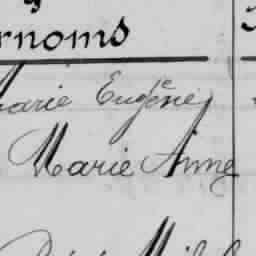 rnoms
arie Eugénie
Marie Anne